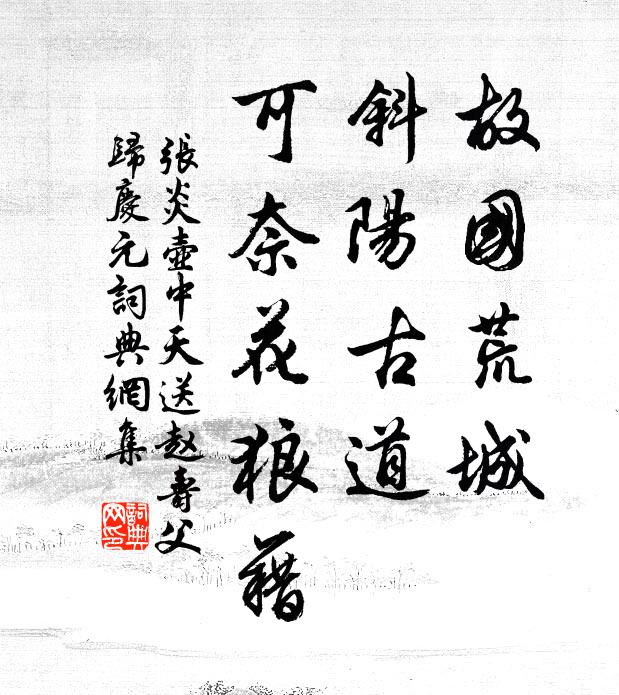 故國荒城
斜陽古道
可奈花狼藉
張炎壺中天送赵壽父
歸慶元詞典網集
詞典網印